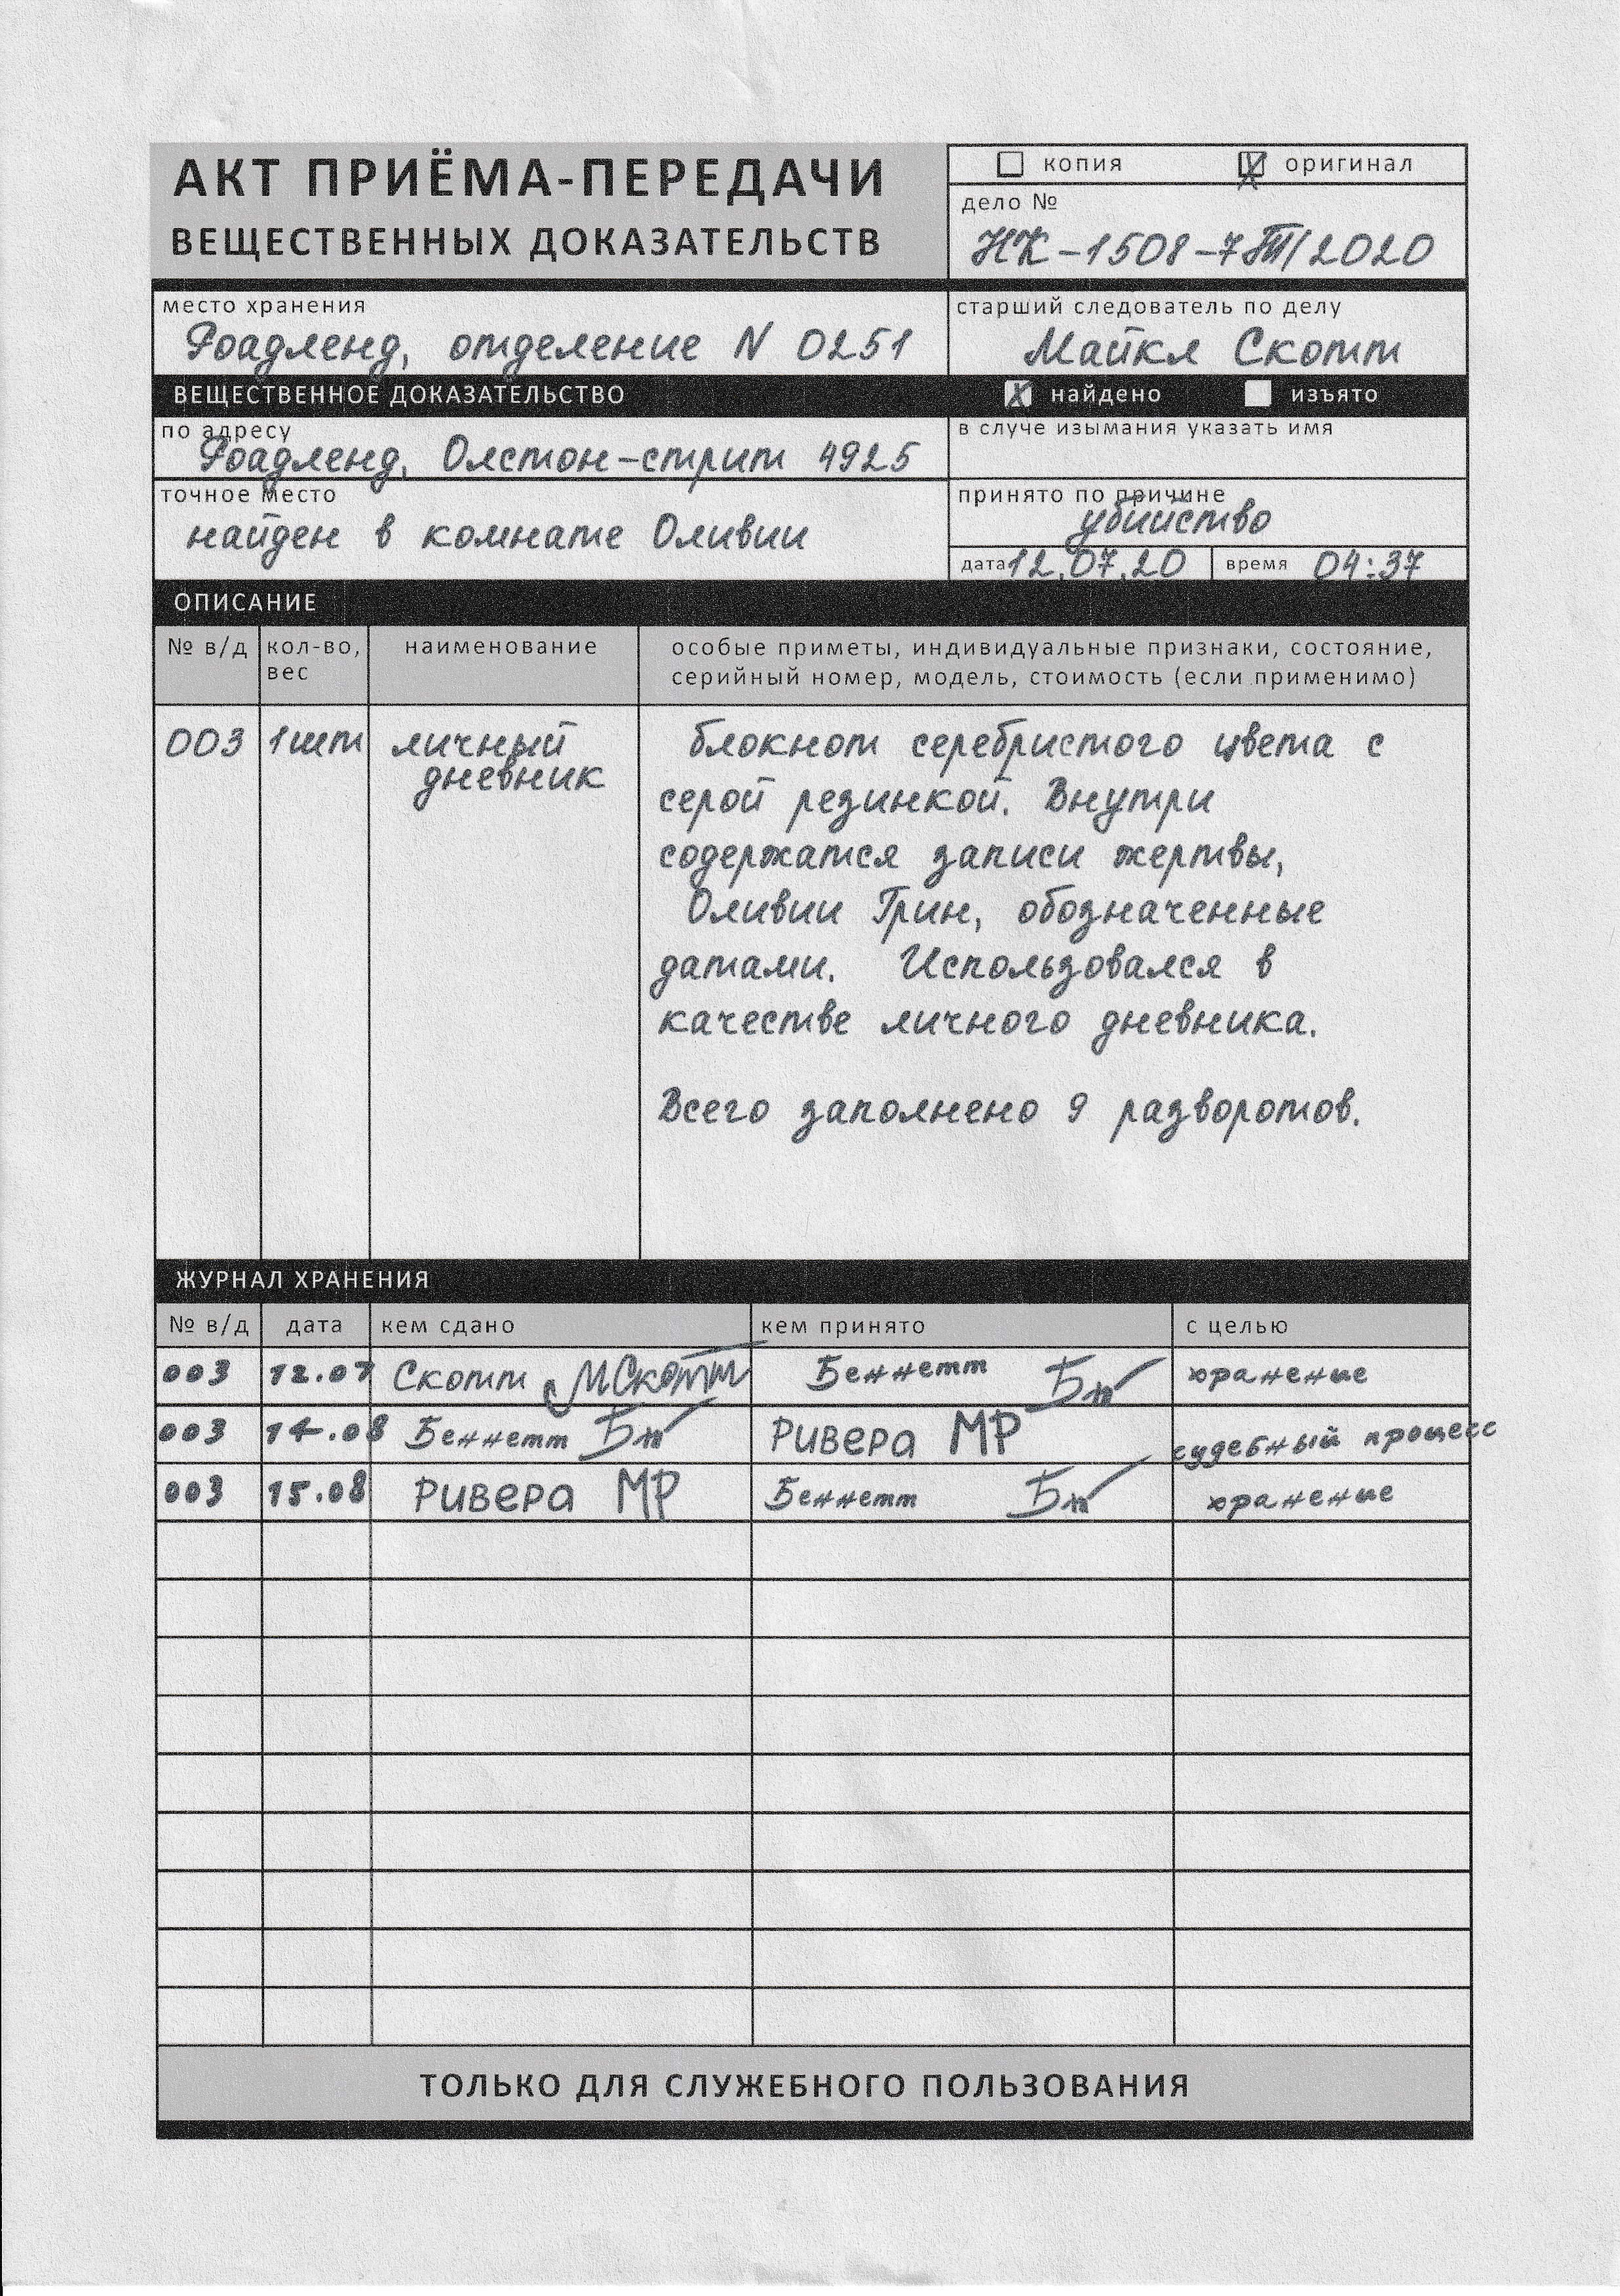 АКТ ПРИЁМА-ПЕРЕДАЧИ
ВЕЩЕСТВЕННЫХ ДОКАЗАТЕЛЬСТВ
копия оригинал
дело №
НК-1508-7ТП/2020
место хранения
Роадленд, отделение N 0251
старший следователь по делу
Майкл Скотт
ВЕЩЕСТВЕННОЕ ДОКАЗАТЕЛЬСТВО
найдено изъято
по адресу
Роадленд, Олстон-стрит 4925
в случе изымания указать имя
точное место
найден в комнате Оливии
принято по причине
убийство
дата 12.07.20 время 04:37
ОПИСАНИЕ
№ в/д кол-во, вес наименование особые приметы, индивидуальные признаки, состояние,
серийный номер, модель, стоимость (если применимо)
003 1шт личный
дневник
блокнот серебристого цвета с
серой резинкой. Внутри
содержатся записи жертвы,
Оливии Грин, обозначенные
датами. Использовался в
качестве личного дневника.
Всего заполнено 9 разворотов.
ЖУРНАЛ ХРАНЕНИЯ
№ в/д дата кем сдано кем принято с целью
003 12.07 Скотт МСкотт Беннетт Бт хранение
003 14.08 Беннетт Бт Ривера МР судебный процесс
003 15.08 Ривера МР Беннетт Бт хранение
ТОЛЬКО ДЛЯ СЛУЖЕБНОГО ПОЛЬЗОВАНИЯ